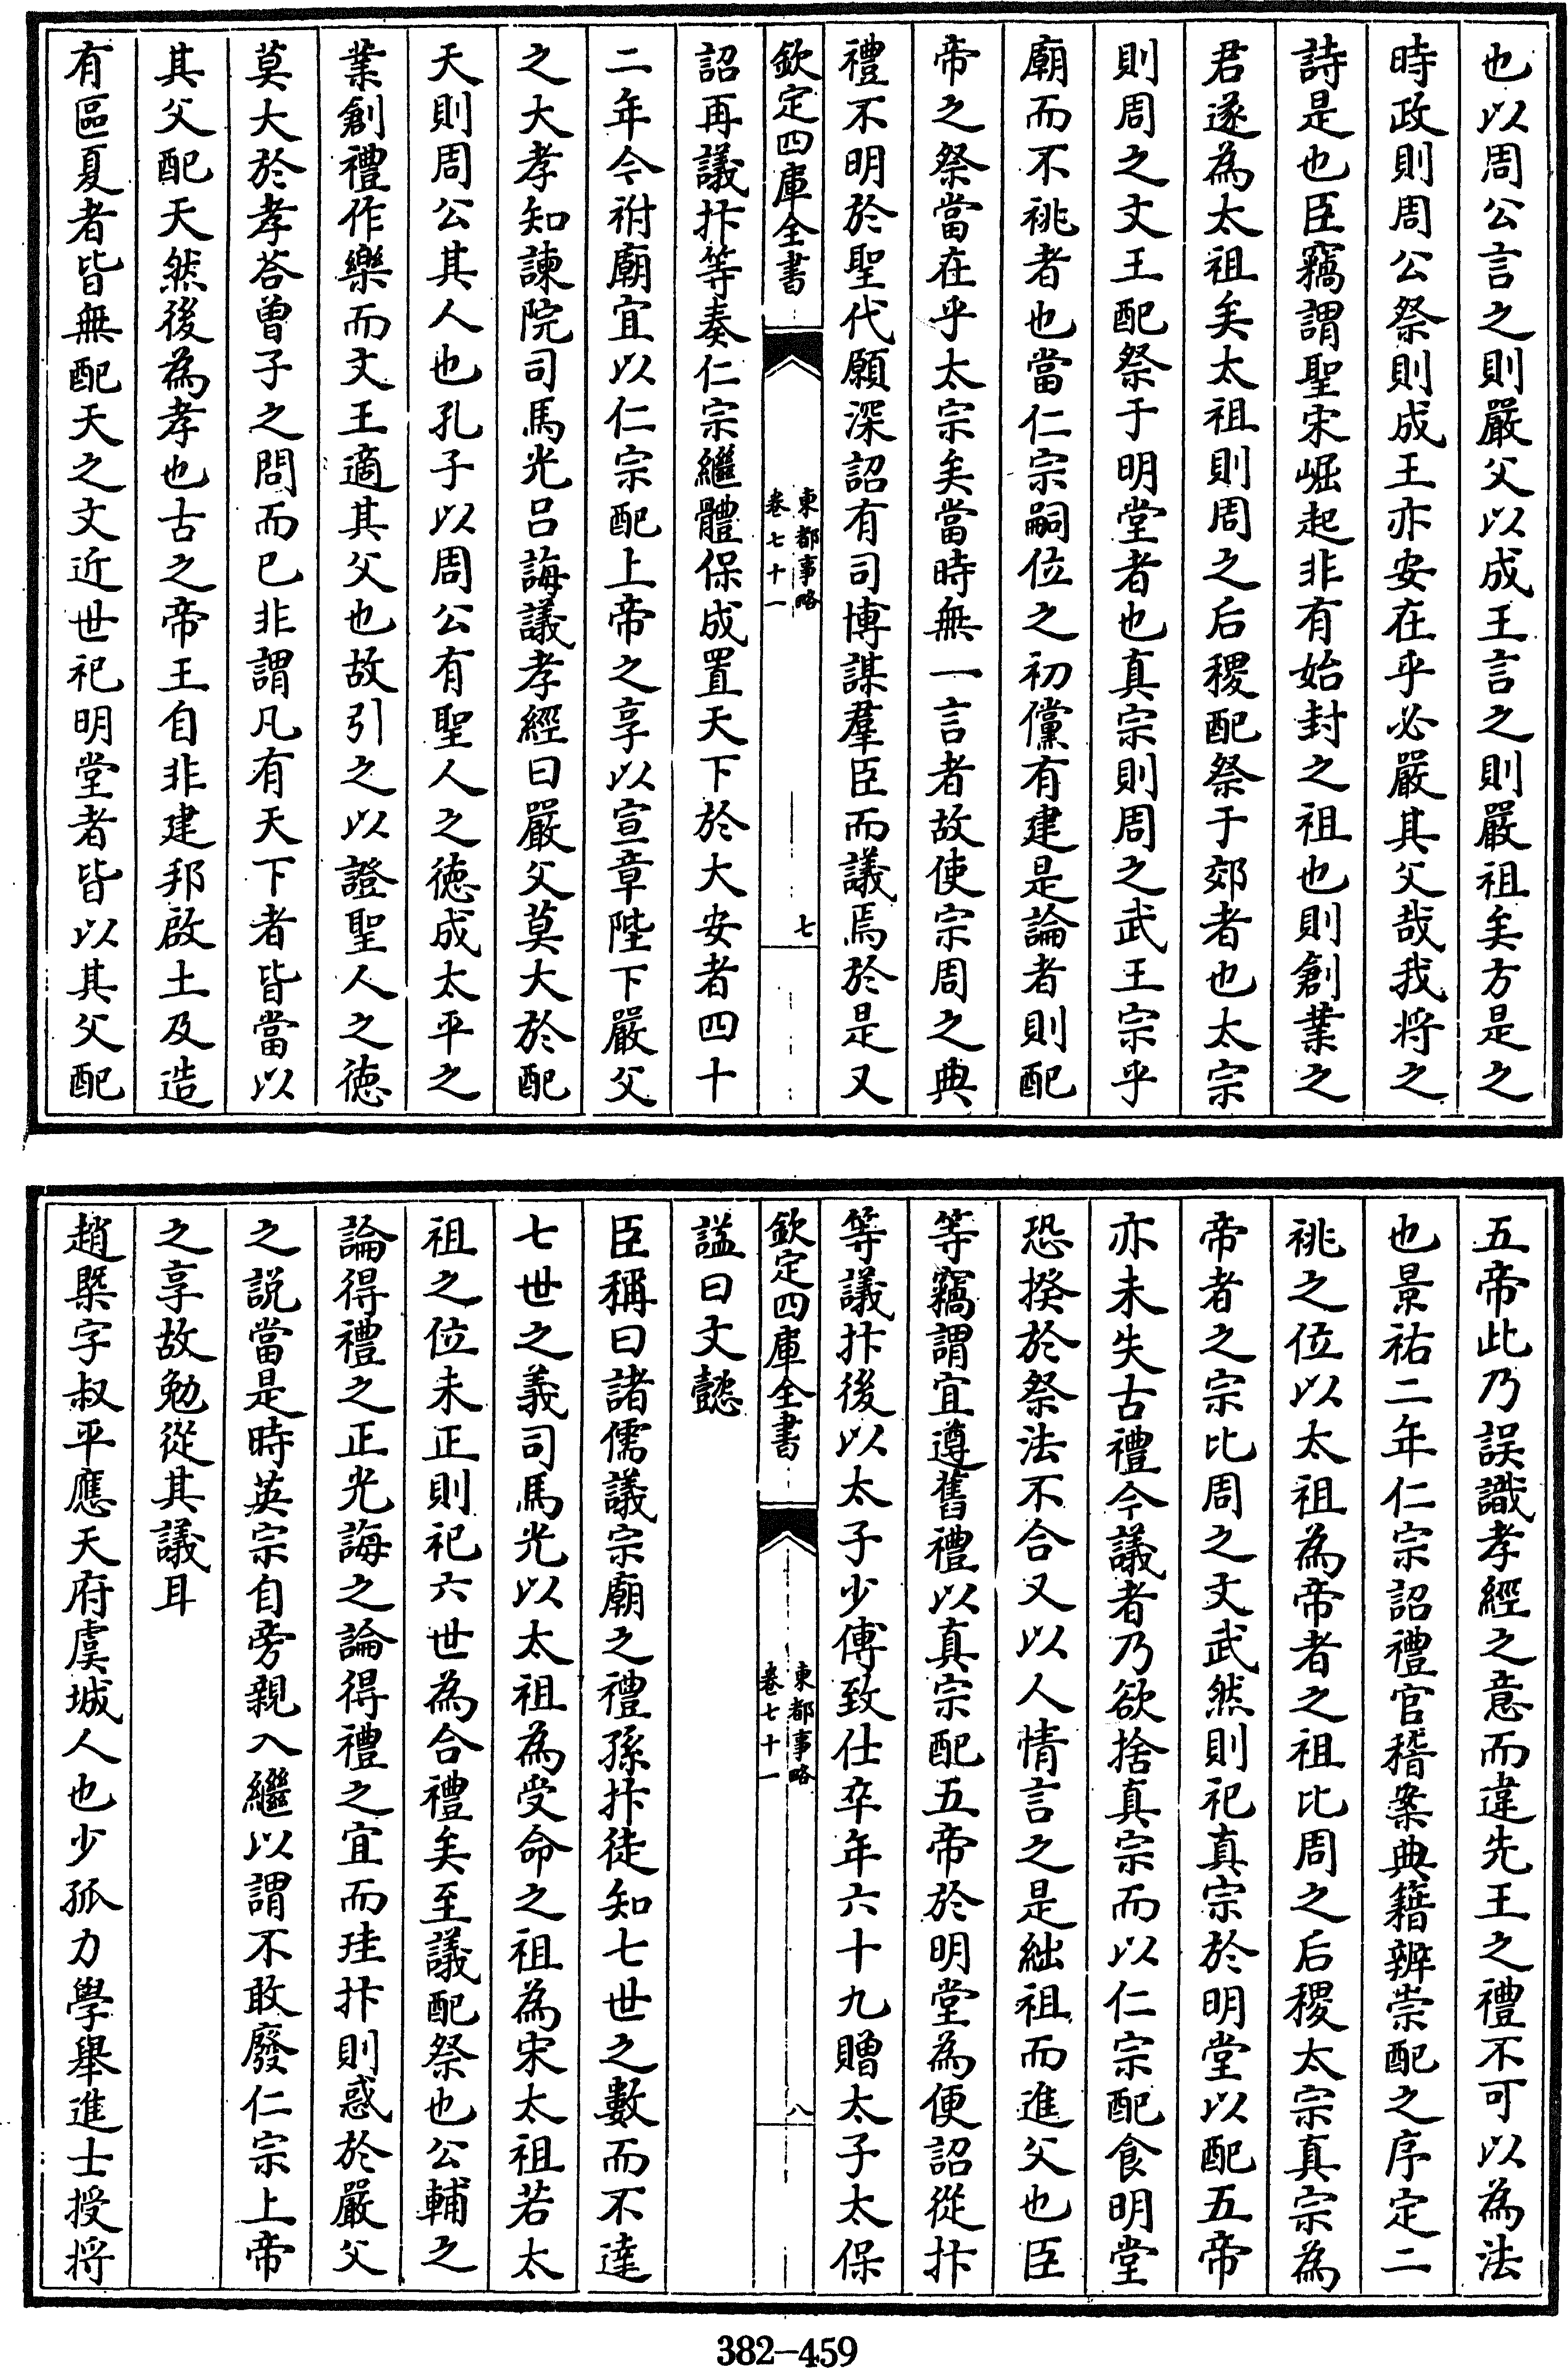 也以周公言之則嚴父以成王言之則嚴祖矣方是之
時政則周公祭則成王亦安在乎必嚴其父哉我將之
詩是也臣竊謂聖宋崛起非有始封之祖也則創業之
君遂為太祖矣太祖則周之后稷配祭于郊者也太宗
則周之文王配祭于明堂者也真宗則周之武王宗乎
廟而不祧者也當仁宗嗣位之初儻有建是論者則配
帝之祭當在乎太宗矣當時無一言者故使宗周之典
禮不明於聖代願深詔有司博謀羣臣而議焉於是又
欽定四庫全書
東都事略
卷七十一
七
詔再議抃等奏仁宗繼體保成置天下於大安者四十
二年今祔廟宜以仁宗配上帝之享以宣章陛下嚴父
之大孝知諫院司馬光呂誨議孝經曰嚴父莫大於配
天則周公其人也孔子以周公有聖人之徳成太平之
業創禮作樂而文王適其父也故引之以證聖人之徳
莫大於孝荅曾子之問而已非謂凡有天下者皆當以
其父配天然後為孝也古之帝王自非建邦啟土及造
有區夏者皆無配天之文近世祀明堂者皆以其父配
五帝此乃誤識孝經之意而違先王之禮不可以為法
也景祐二年仁宗詔禮官稽案典籍辨崇配之序定二
祧之位以太祖為帝者之祖比周之后稷太宗真宗為
帝者之宗比周之文武然則祀真宗於明堂以配五帝
亦未失古禮今議者乃欲捨真宗而以仁宗配食明堂
恐揆於祭法不合又以人情言之是絀祖而進父也臣
等竊謂宜遵舊禮以真宗配五帝於明堂為便詔從抃
等議抃後以太子少傅致仕卒年六十九贈太子太保
欽定四庫全書
東都事略
卷七十一
八
諡曰文懿
臣稱曰諸儒議宗廟之禮孫抃徒知七世之數而不達
七世之義司馬光以太祖為受命之祖為宋太祖若太
祖之位未正則祀六世為合禮矣至議配祭也公輔之
論得禮之正光誨之論得禮之宜而珪抃則惑於嚴父
之說當是時英宗自旁親入繼以謂不敢廢仁宗上帝
之享故勉從其議耳
趙槩字叔平應天府虞城人也少孤力學舉進士授將
382-459